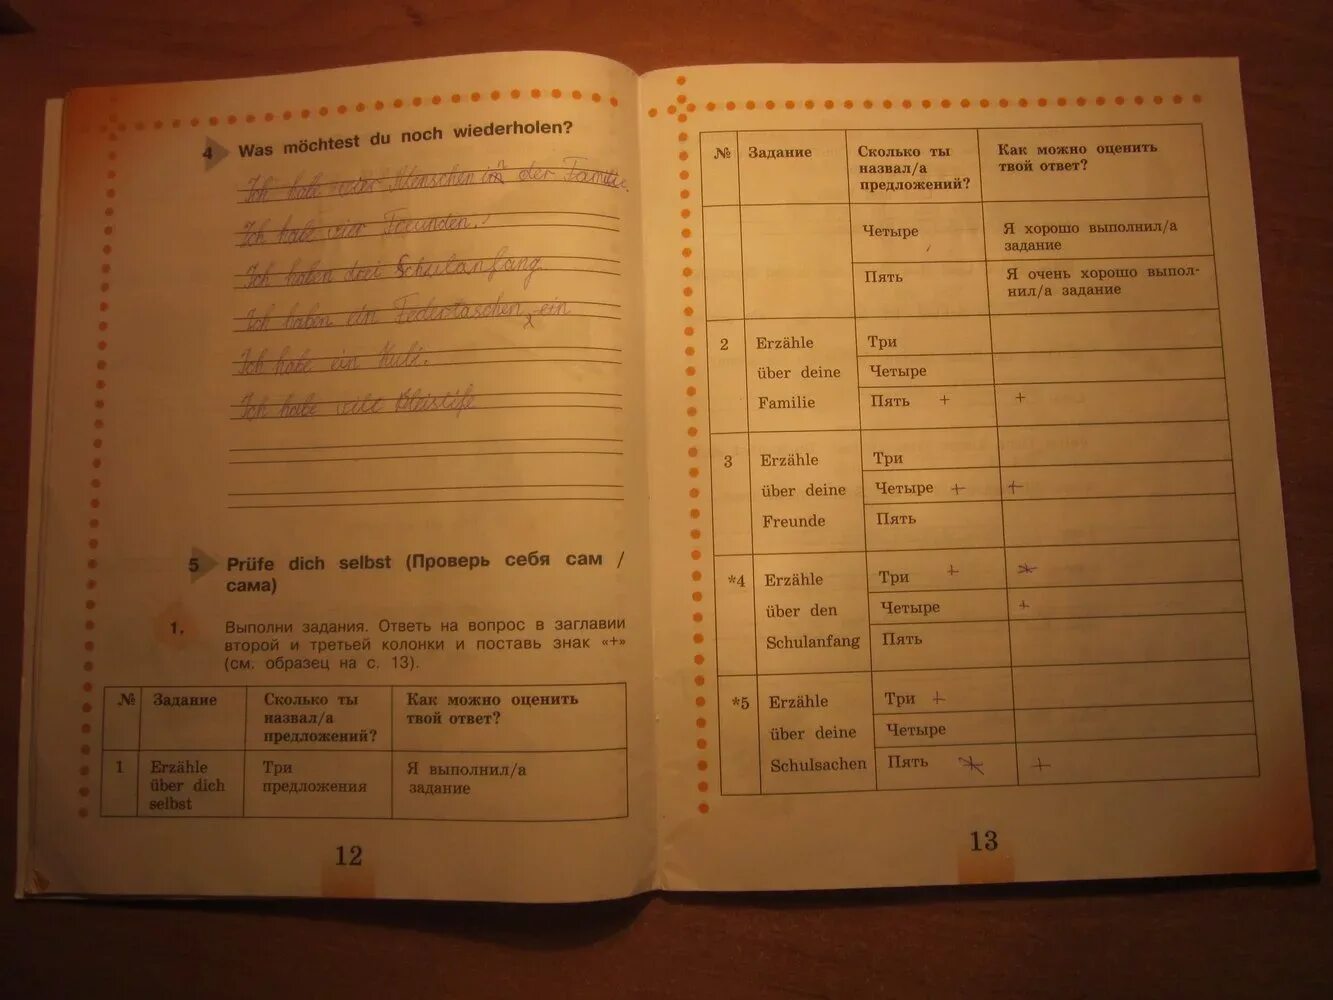 4 Was möchtest du noch wiederholen?
Ich habe vier Menschen in der Familie.
Ich habe vier Freunden.
Ich haben drei Schulanfang
Ich haben ein Federtaschen, ein
Ich habe ein Kuli.
Ich habe
5 Prüfe dich selbst (Проверь себя сам /
сама)
1. Выполни задания. Ответь на вопрос в заглавии
второй и третьей колонки и поставь знак «+»
(см. образец на с. 13).
№ Задание Сколько ты Как можно оценить
назвал/а твой ответ?
предложений?
1 Erzähle Три Я выполнил/а
über dich предложения задание
selbst
12
№ Задание Сколько ты Как можно оценить
назвал/а твой ответ?
предложений?
Четыре Я хорошо выполнил/а
задание
Пять Я очень хорошо выпол-
нил/а задание
2 Erzähle Три
über deine Четыре
Familie Пять + +
3 Erzähle Три
über deine Четыре + +
Freunde Пять
*4 Erzähle Три +
über den Четыре +
Schulanfang Пять
*5 Erzähle Три +
über deine Четыре
Schulsachen Пять +
13